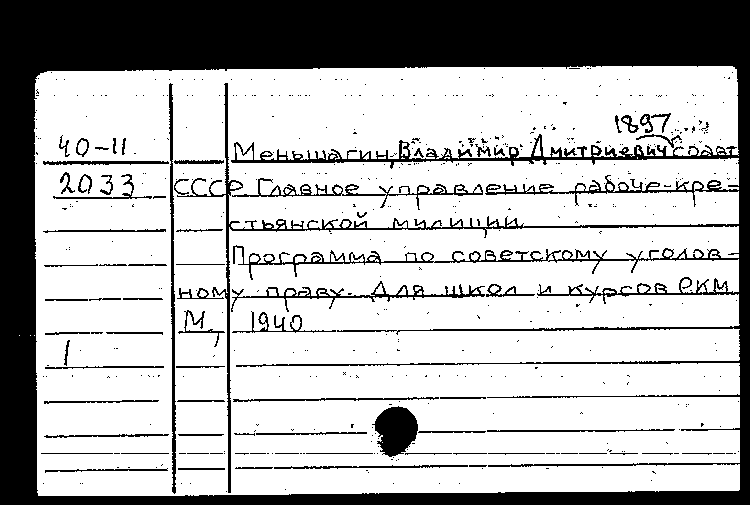 1897
40-11 Меньшагин, Владимир Дмитриевич соавт
2033 СССР Главное управление рабоче-кре-
стьянской милиции
Программа по советскому уголов-
ному праву. Для школ и курсов РКМ
М, 1940
1